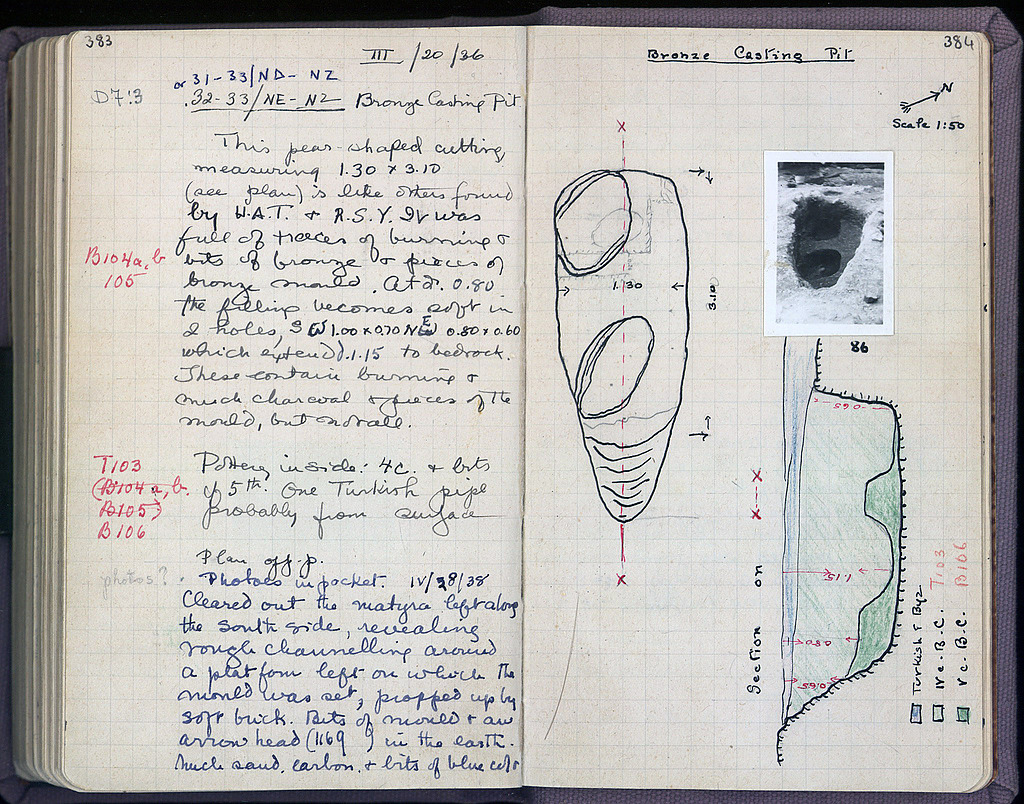 383
III/20/36
or 31-33/ND-NZ
D7:3
32-33/NE-NZ Bronze Casting Pit
This pear-shaped cutting,
measuring 1.30 x 3.10
(see plan) is like others found
by H.A.T. & R.S.Y. It was
full of traces of burning &
B104a,b
105
bits of bronze & pieces of
bronze mould. At d. 0.80
the filling becomes soft in
2 holes, SW 1.00 x 0.70 NE 0.80 x 0.60
which extend d. 1.15 to bedrock.
These contain burning &
much charcoal & pieces of the
mould, but not all.
T103
(B104a,b.
B105)
B106
Pottery inside: 4c. & bits
of 5th. One Turkish pipe
probably from surface
Plan opp. p.
photos?
Photoes in pocket. IV/28/38
Cleared out the matyra left along
the south side, revealing
rough channelling around
a platform left on which the
mould was set, propped up by
soft brick. Bits of mould & an
arrow head (1169 ) in the earth.
Much sand, carbon, & bits of blue
384
Bronze Casting Pit
N
Scale 1:50
X
1.30
3.10
X
86
Section on X---X
0.65
1.15
0.80
0.65
Turkish & Byz
IV c. B.C. T103
V c. B.C. B106